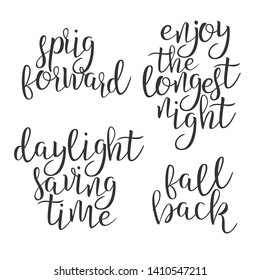 sprig
forward
enjoy
the
longest
night
daylight
saving
time
fall
back
shutterstock.com · 1410547211